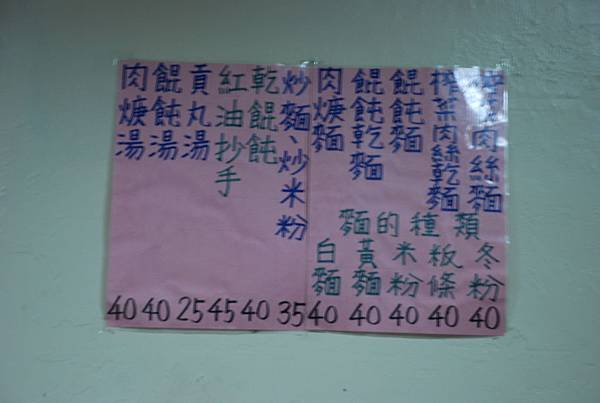 榨菜肉絲麵
榨菜肉絲乾麵
餛飩麵
餛飩乾麵
肉焿麵
麵的種類
冬粉
粄條
米粉
黃麵
白麵
炒麵、炒米粉
乾餛飩
紅油抄手
貢丸湯
餛飩湯
肉焿湯
40 40 25 45 40 35 40 40 40 40 40